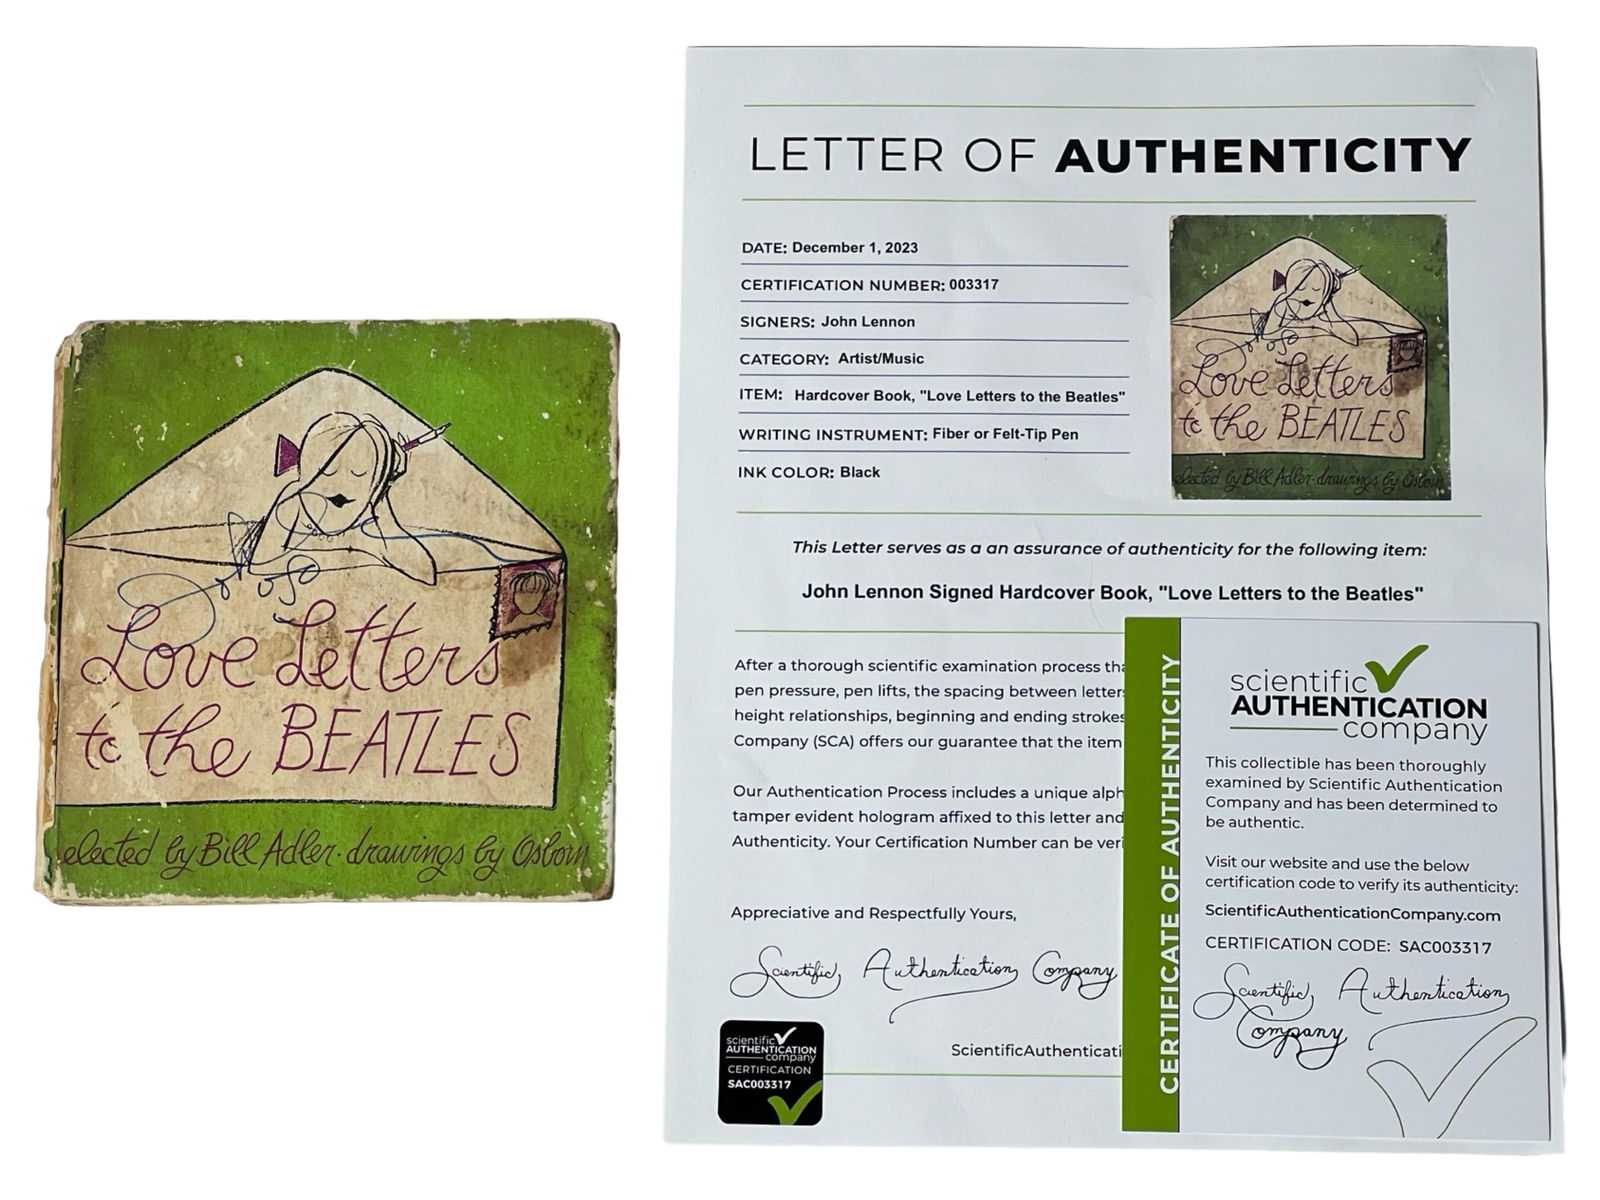 Love Letters
to the BEATLES
elected by Bill Adler · drawings by Osborn
LETTER OF AUTHENTICITY
DATE: December 1, 2023
CERTIFICATION NUMBER: 003317
SIGNERS: John Lennon
CATEGORY: Artist/Music
ITEM: Hardcover Book, "Love Letters to the Beatles"
WRITING INSTRUMENT: Fiber or Felt-Tip Pen
INK COLOR: Black
Love Letters
to the BEATLES
elected by Bill Adler · drawings by Osborn
This Letter serves as a an assurance of authenticity for the following item:
John Lennon Signed Hardcover Book, "Love Letters to the Beatles"
After a thorough scientific examination process tha
pen pressure, pen lifts, the spacing between letters
height relationships, beginning and ending strokes
Company (SCA) offers our guarantee that the item
Our Authentication Process includes a unique alph
tamper evident hologram affixed to this letter and
Authenticity. Your Certification Number can be veri
Appreciative and Respectfully Yours,
Scientific Authentication Company
ScientificAuthenticati
scientific
AUTHENTICATION
company
CERTIFICATION
SAC003317
CERTIFICATE OF AUTHENTICITY
scientific
AUTHENTICATION
company
This collectible has been thoroughly
examined by Scientific Authentication
Company and has been determined to
be authentic.
Visit our website and use the below
certification code to verify its authenticity:
ScientificAuthenticationCompany.com
CERTIFICATION CODE: SAC003317
Scientific Authentication
Company